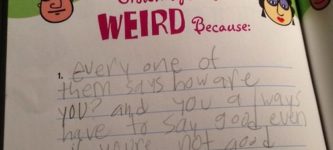 WEIRD Because:
1. every one of
them says how are
you? and you always
have to say good even
if you're not good